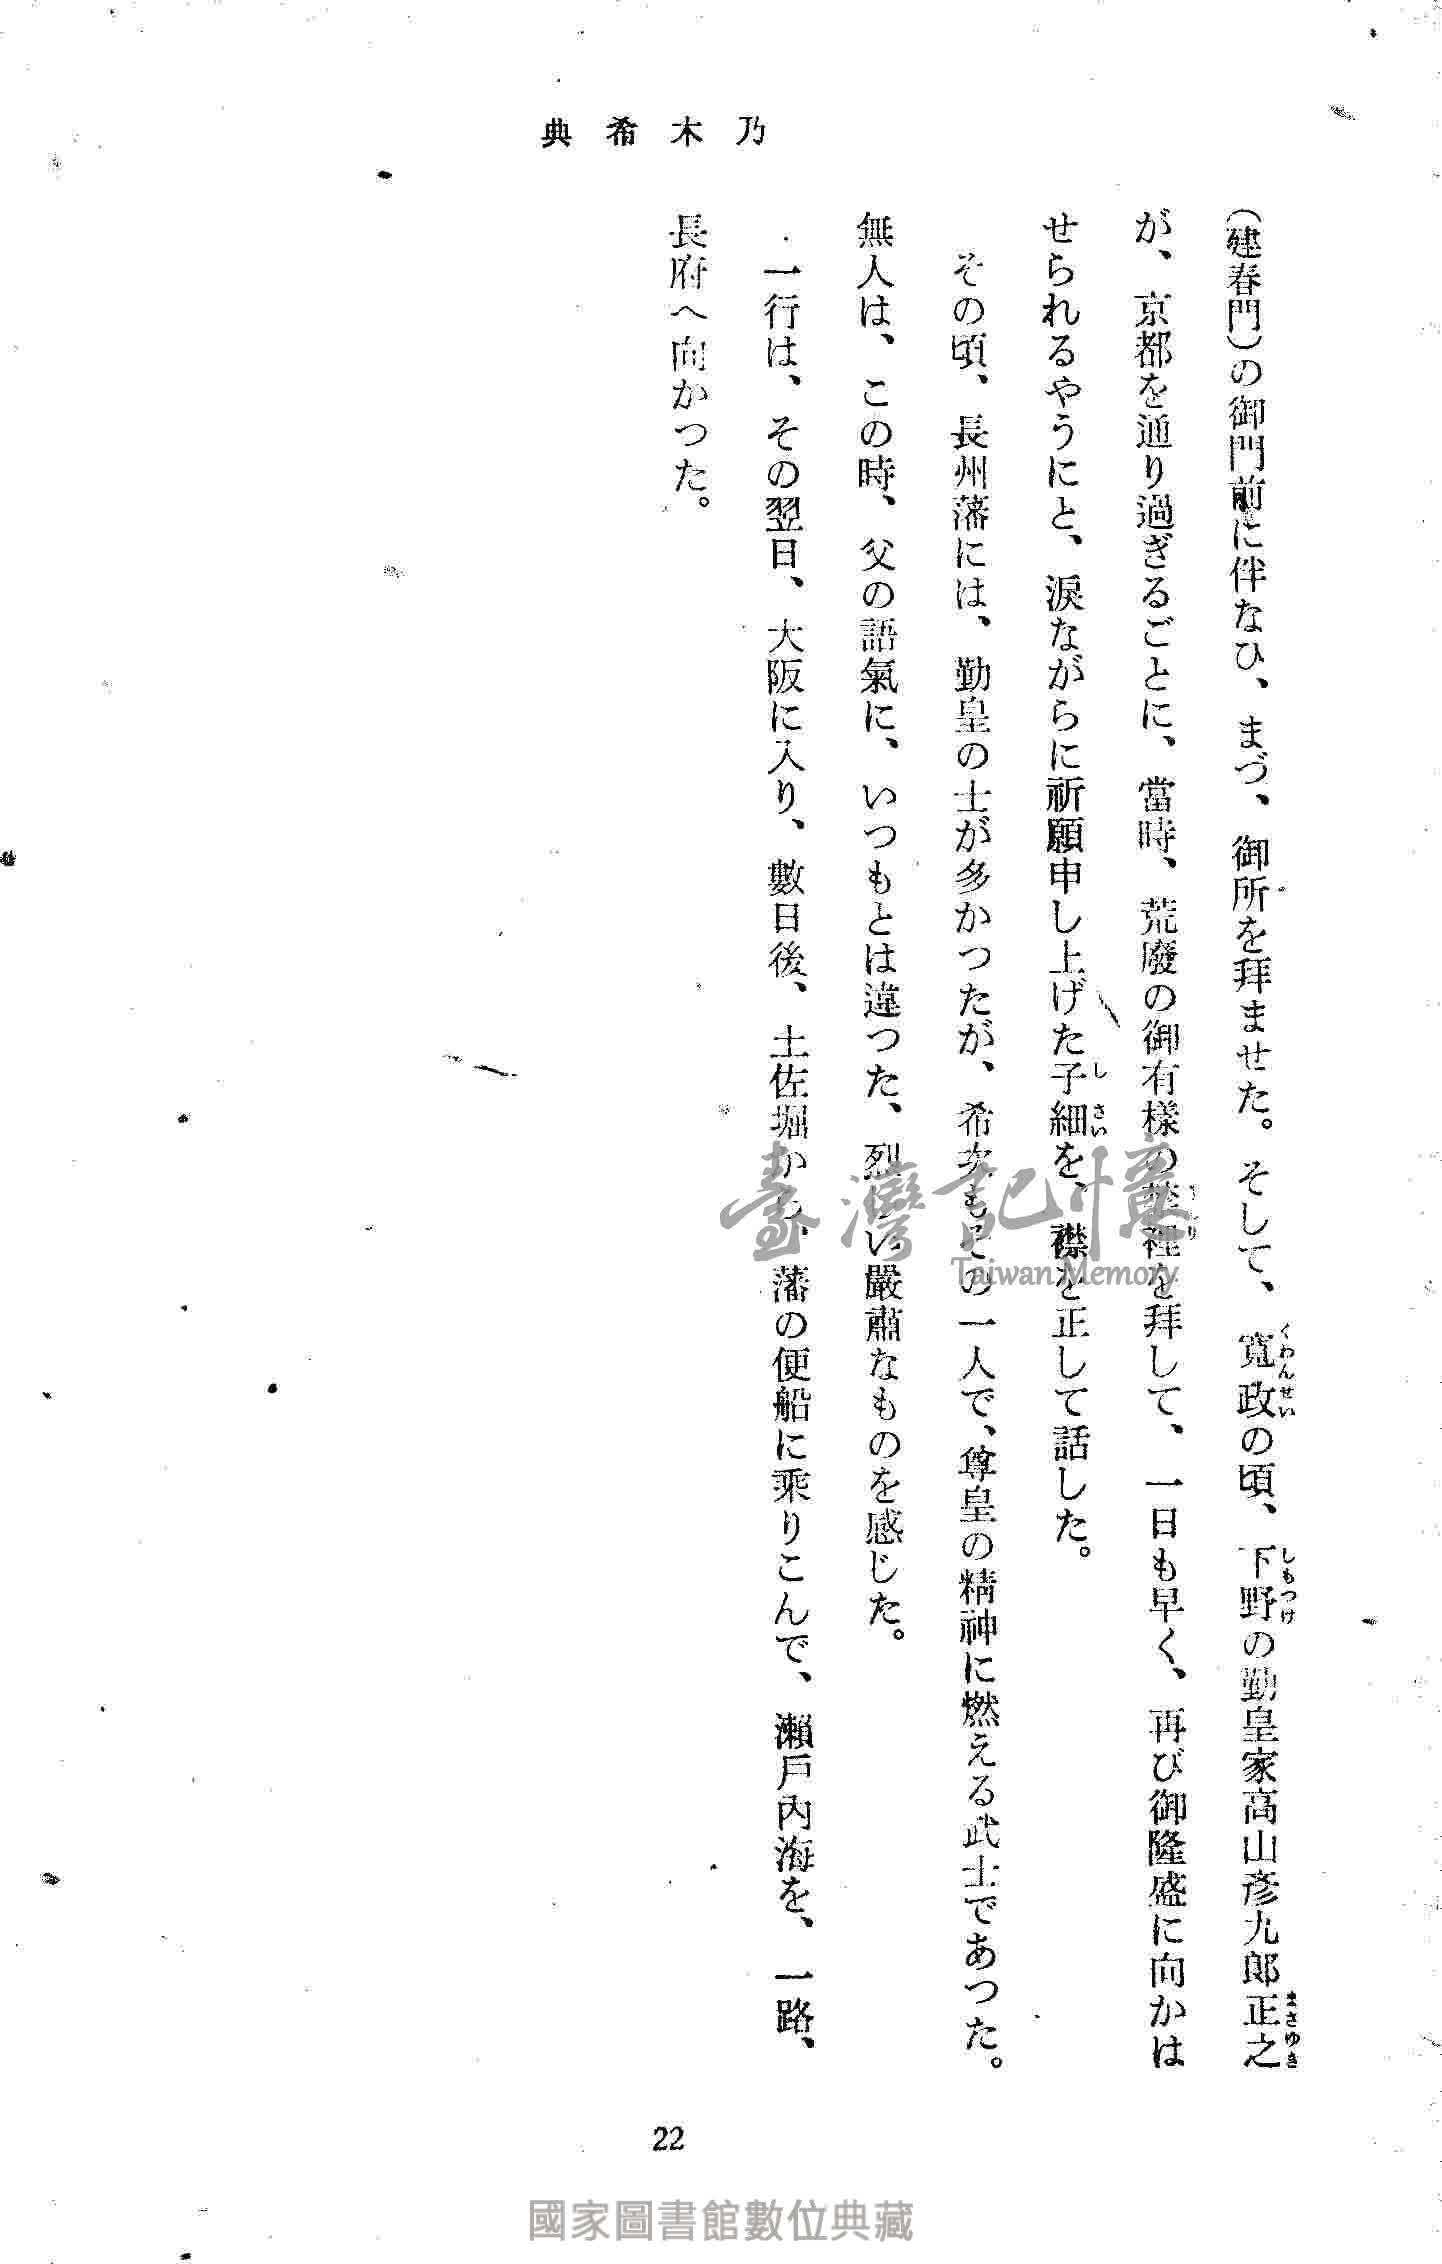 典希木乃
（建春門）の御門前に伴なひ、まづ、御所を拜ませた。そして、寬政の頃、下野の勤皇家高山彥九郎正之
くわんせい
しもつけ
まさゆき
が、京都を通り過ぎるごとに、當時、荒廢の御有樣の禁裡を拜して、一日も早く、再び御隆盛に向かは
せられるやうにと、淚ながらに祈願申し上げた子細を、襟を正して話した。
しさい
その頃、長州藩には、勤皇の士が多かつたが、希次もその一人で、尊皇の精神に燃える武士であつた。
無人は、この時、父の語氣に、いつもとは違つた、烈しい嚴肅なものを感じた。
一行は、その翌日、大阪に入り、數日後、土佐堀から、藩の便船に乘りこんで、瀨戶內海を、一路、
長府へ向かつた。
22
臺灣記憶
Taiwan Memory
國家圖書館數位典藏